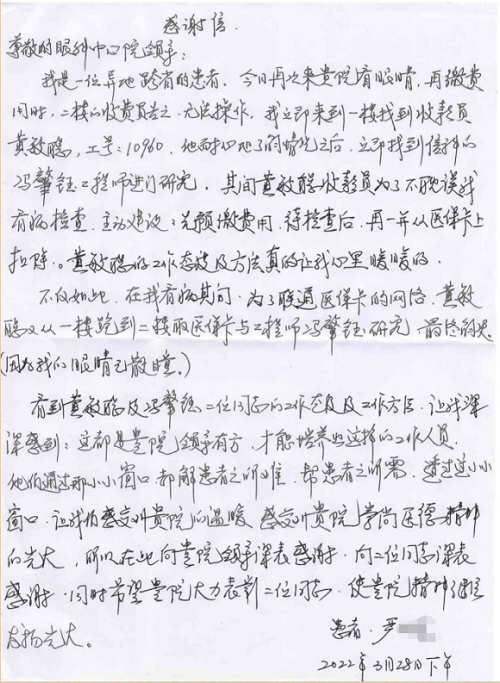 感谢信.
尊敬的眼科中心院领导:
我是一位异地路省的患者. 今日再次来贵院看眼睛, 再缴费
同时, 二楼的收费员 无法操作, 我立即来到一楼找到收款员
黄敏聪, 工号: 10960, 他耐心地 了解情况之后, 立即找到信科的
冯肇钰工程师进行研究. 其间黄敏聪收款员为了不耽误我
看病检查. 主动建议: 先预缴费用, 待检查后, 再一并从医保卡上
扣除. 。黄敏聪的工作态度及方法真的让我心里暖暖的.
不仅如此, 在我看病其间. 为了联通医保卡的网络. 黄敏
聪又从一楼跑到二楼取医保卡与工程师冯肇钰研究
(因为我的眼睛已散瞳。)
看到黄敏聪及冯肇钰二位同志的工作态度及工作方法. 让我深
深感到: 这都是贵院领导有方, 才能培养出这样的工作人员.
他们通过那小小窗口, 都解患者之所难, 帮患者之所需. 透过这小小
窗口, 让我们感受到贵院的温暖 感受到贵院崇尚医德精神
的光大, 所以在此向贵院领导深表感谢. 向二位同志深表
感谢. 同时希望贵院大力表彰二位同志, 使贵院精神
发扬光大。
患者: 严
2022年3月28日下午